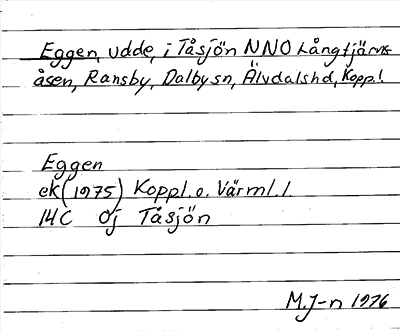 Eggen, udde, i Tåsjön NNO Långtjärns
åsen, Ransby, Dalby sn, Älvdals hd, Koppl.
Eggen
ek (1975) Koppl. o. Värml. l
14C Öj Tåsjön
M.J-n 1976